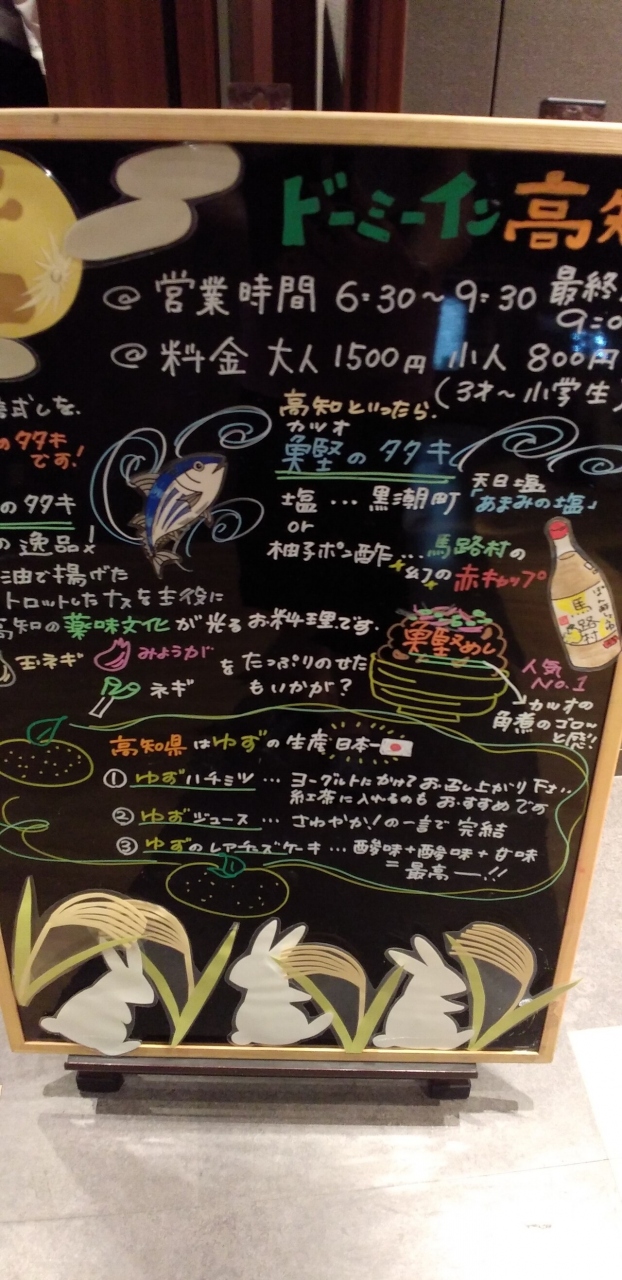 ドーミーイン高知
@ 営業時間 6:30〜9:30 最終
9:0
@ 料金 大人1500円 小人 800円
(3才〜小学生)
しを、
のタタキ
です!
のタタキ
の逸品!
油で揚げた
トロットしたナスを主役に
高知の薬味文化が光るお料理です。
玉ネギ みょうが
ネギ
をたっぷりのせた
もいかが?
高知といったら、
カツオ
鰹のタタキ
塩…黒潮町 天日塩
「あまみの塩」
or
柚子ポン酢…馬路村の
幻の赤キャップ
ぽん酢しょうゆ
馬路村
鰹めし
人気
No.1
カツオの
角煮のゴロ〜
と感!
高知県はゆずの生産日本一
① ゆずハチミツ … ヨーグルトにかけてお召し上がり下さい。
紅茶に入れるのもおすすめです
② ゆずジュース … さわやか!の一言で完結
③ ゆずのレアチーズケーキ … 酸味+酸味+甘味
=最高ー!!